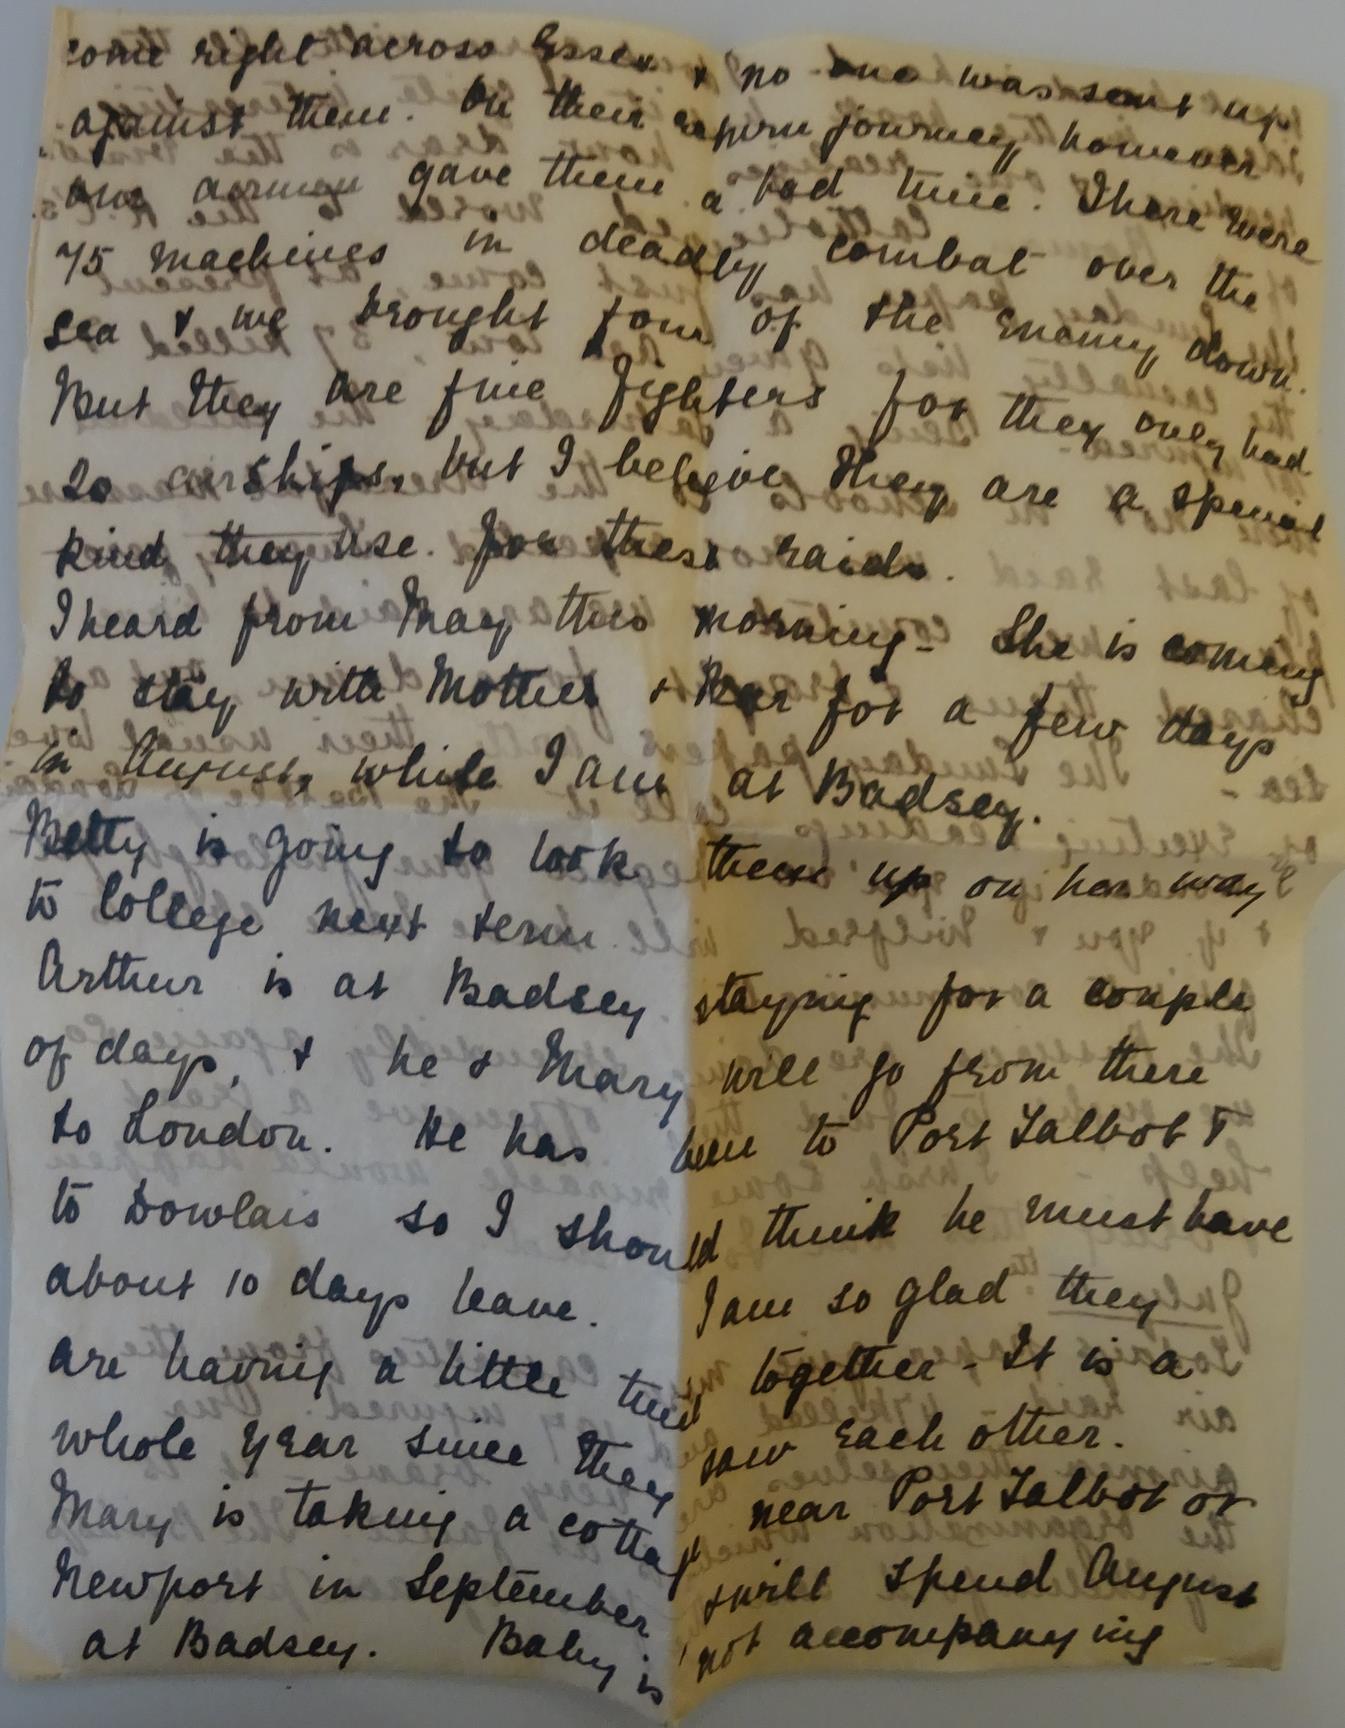 come right across Essex & no one was sent up
against them. On their return journey however
our airmen gave them a bad time. There were
75 machines in deadly combat over the
sea & we brought four of the enemy down.
But they are fine fighters for they only had
20 airships, but I believe they are a special
kind they use for these raids.
I heard from May this morning - She is coming
to stay with Mother & Kar for a few days
in August, while I am at Badsey.
Betty is going to look them up on her way
to College next term.
Arthur is at Badsey staying for a couple
of days, & he & Mary will go from there
to London. He has been to Port Talbot &
to Dowlais so I should think he must have
about 10 days leave. I am so glad they
are having a little time together - It is a
whole year since they saw each other.
Mary is taking a cottage near Port Talbot or
Newport in September & will spend August
at Badsey. Baby is not accompanying